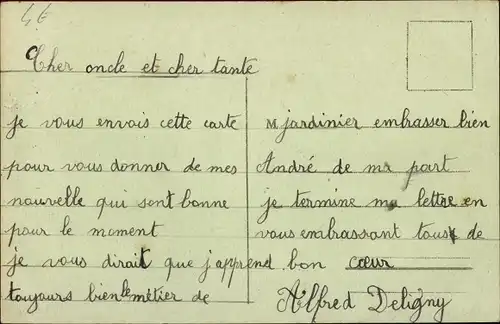 4€
Cher oncle et cher tante
je vous envois cette carte
pour vous donner de mes
nouvelle qui sont bonne
pour le moment
je vous dirait que j'apprend
toujours bien le métier de
M jardinier embrasser bien
André de ma part
je termine ma lettre en
vous embrassant tous de
bon cœur
Alfred Deligny